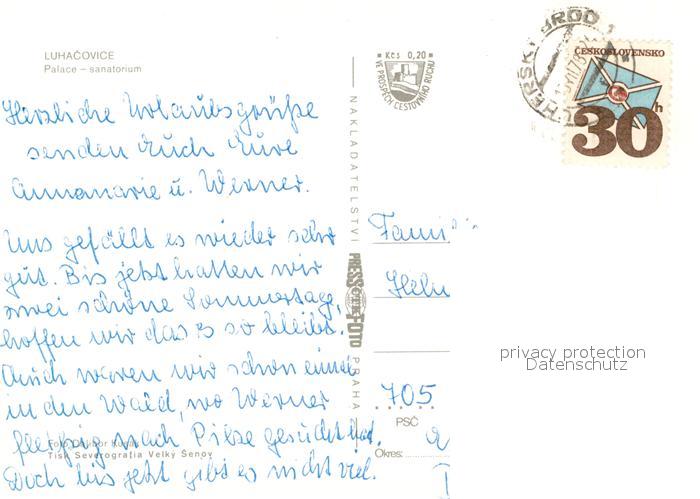 LUHAČOVICE
Palace – sanatorium
Kčs 0,20
VE PROSPĚCH CESTOVNÍHO RUCHU
BROD
ČESKOSLOVENSKO
30h
Herzliche Urlaubsgrüße
senden Euch Eure
Annamarie u. Werner.
Uns gefällt es wieder sehr
gut. Bis jetzt hatten wir
zwei schöne Sommertage,
hoffen wir das es so bleibt.
Auch waren wir schon einmal
in den Wald, wo Werner
fleißig nach Pilze gesucht hat.
Doch bis jetzt gibt es nicht viel.
Foto
Tisk Severografia Velký Šenov
NAKLADATELSTVÍ
PRESSFOTO
PRAHA
Fami
Helm
705
PSČ
Okres:
privacy protection
Datenschutz